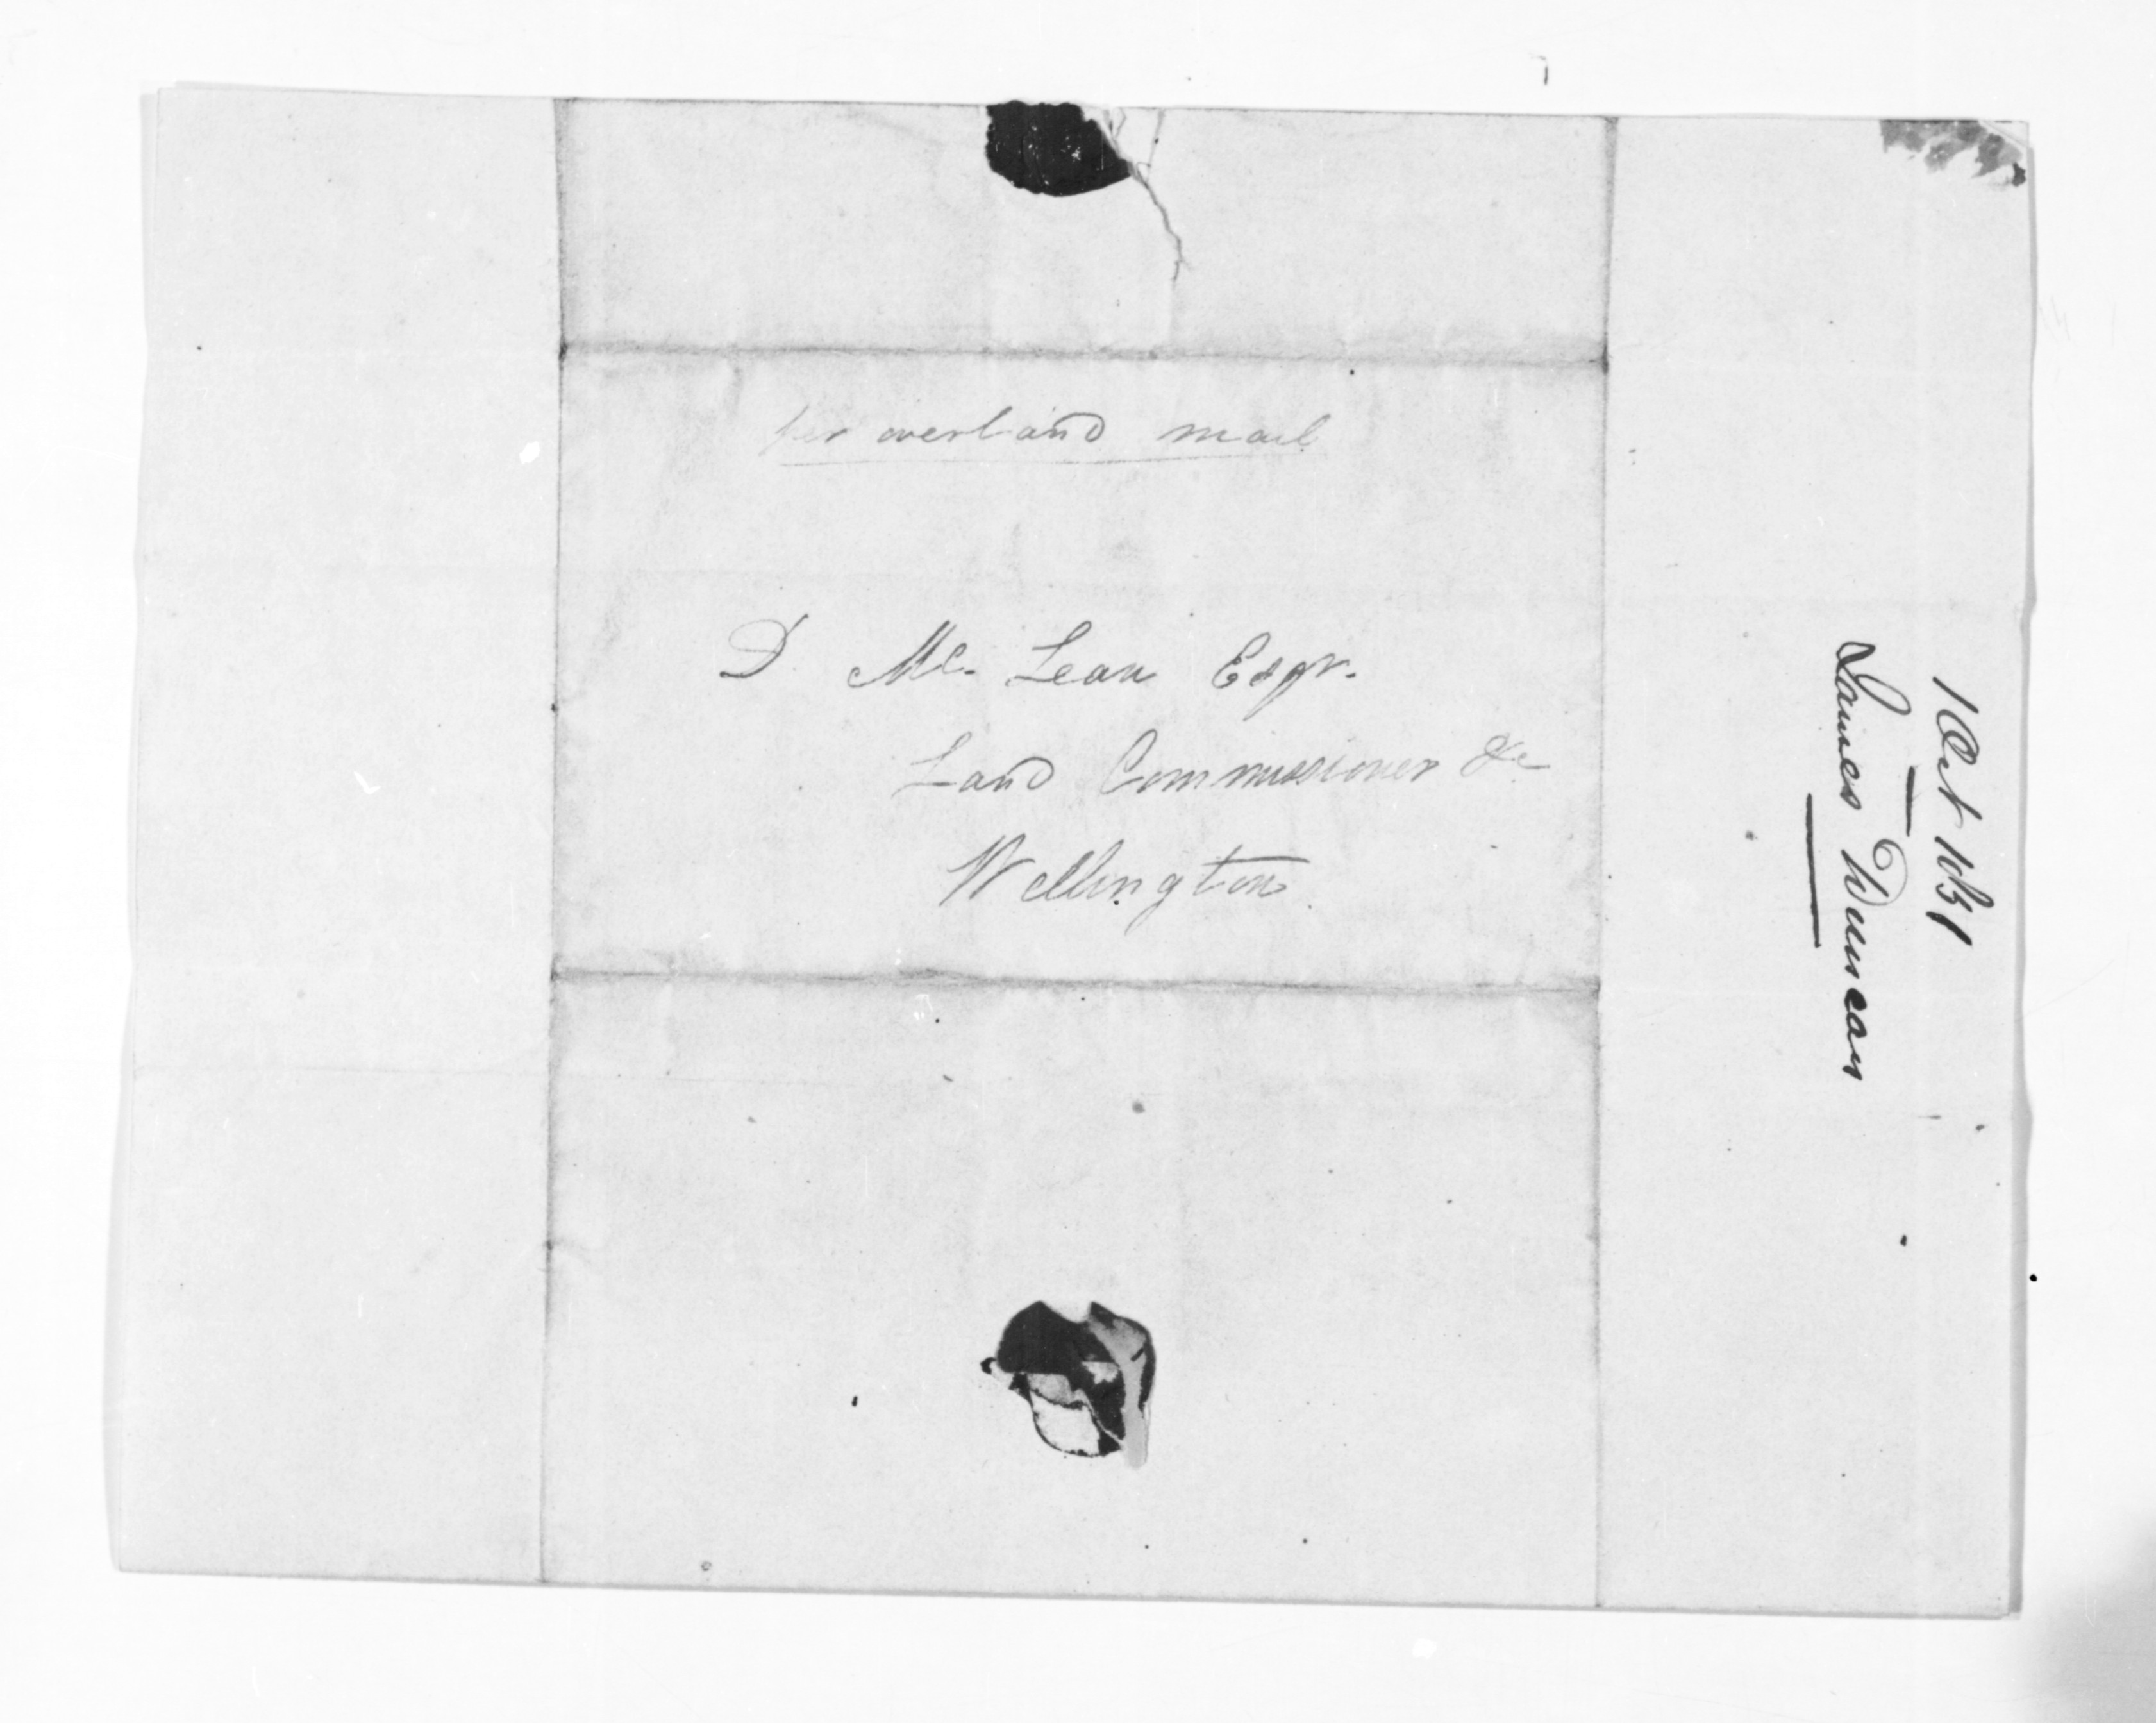 per overland mail
D Mc. Lean Esqr.
Land Commissioner &c
Wellington
1 Oct 1851
James Duncan